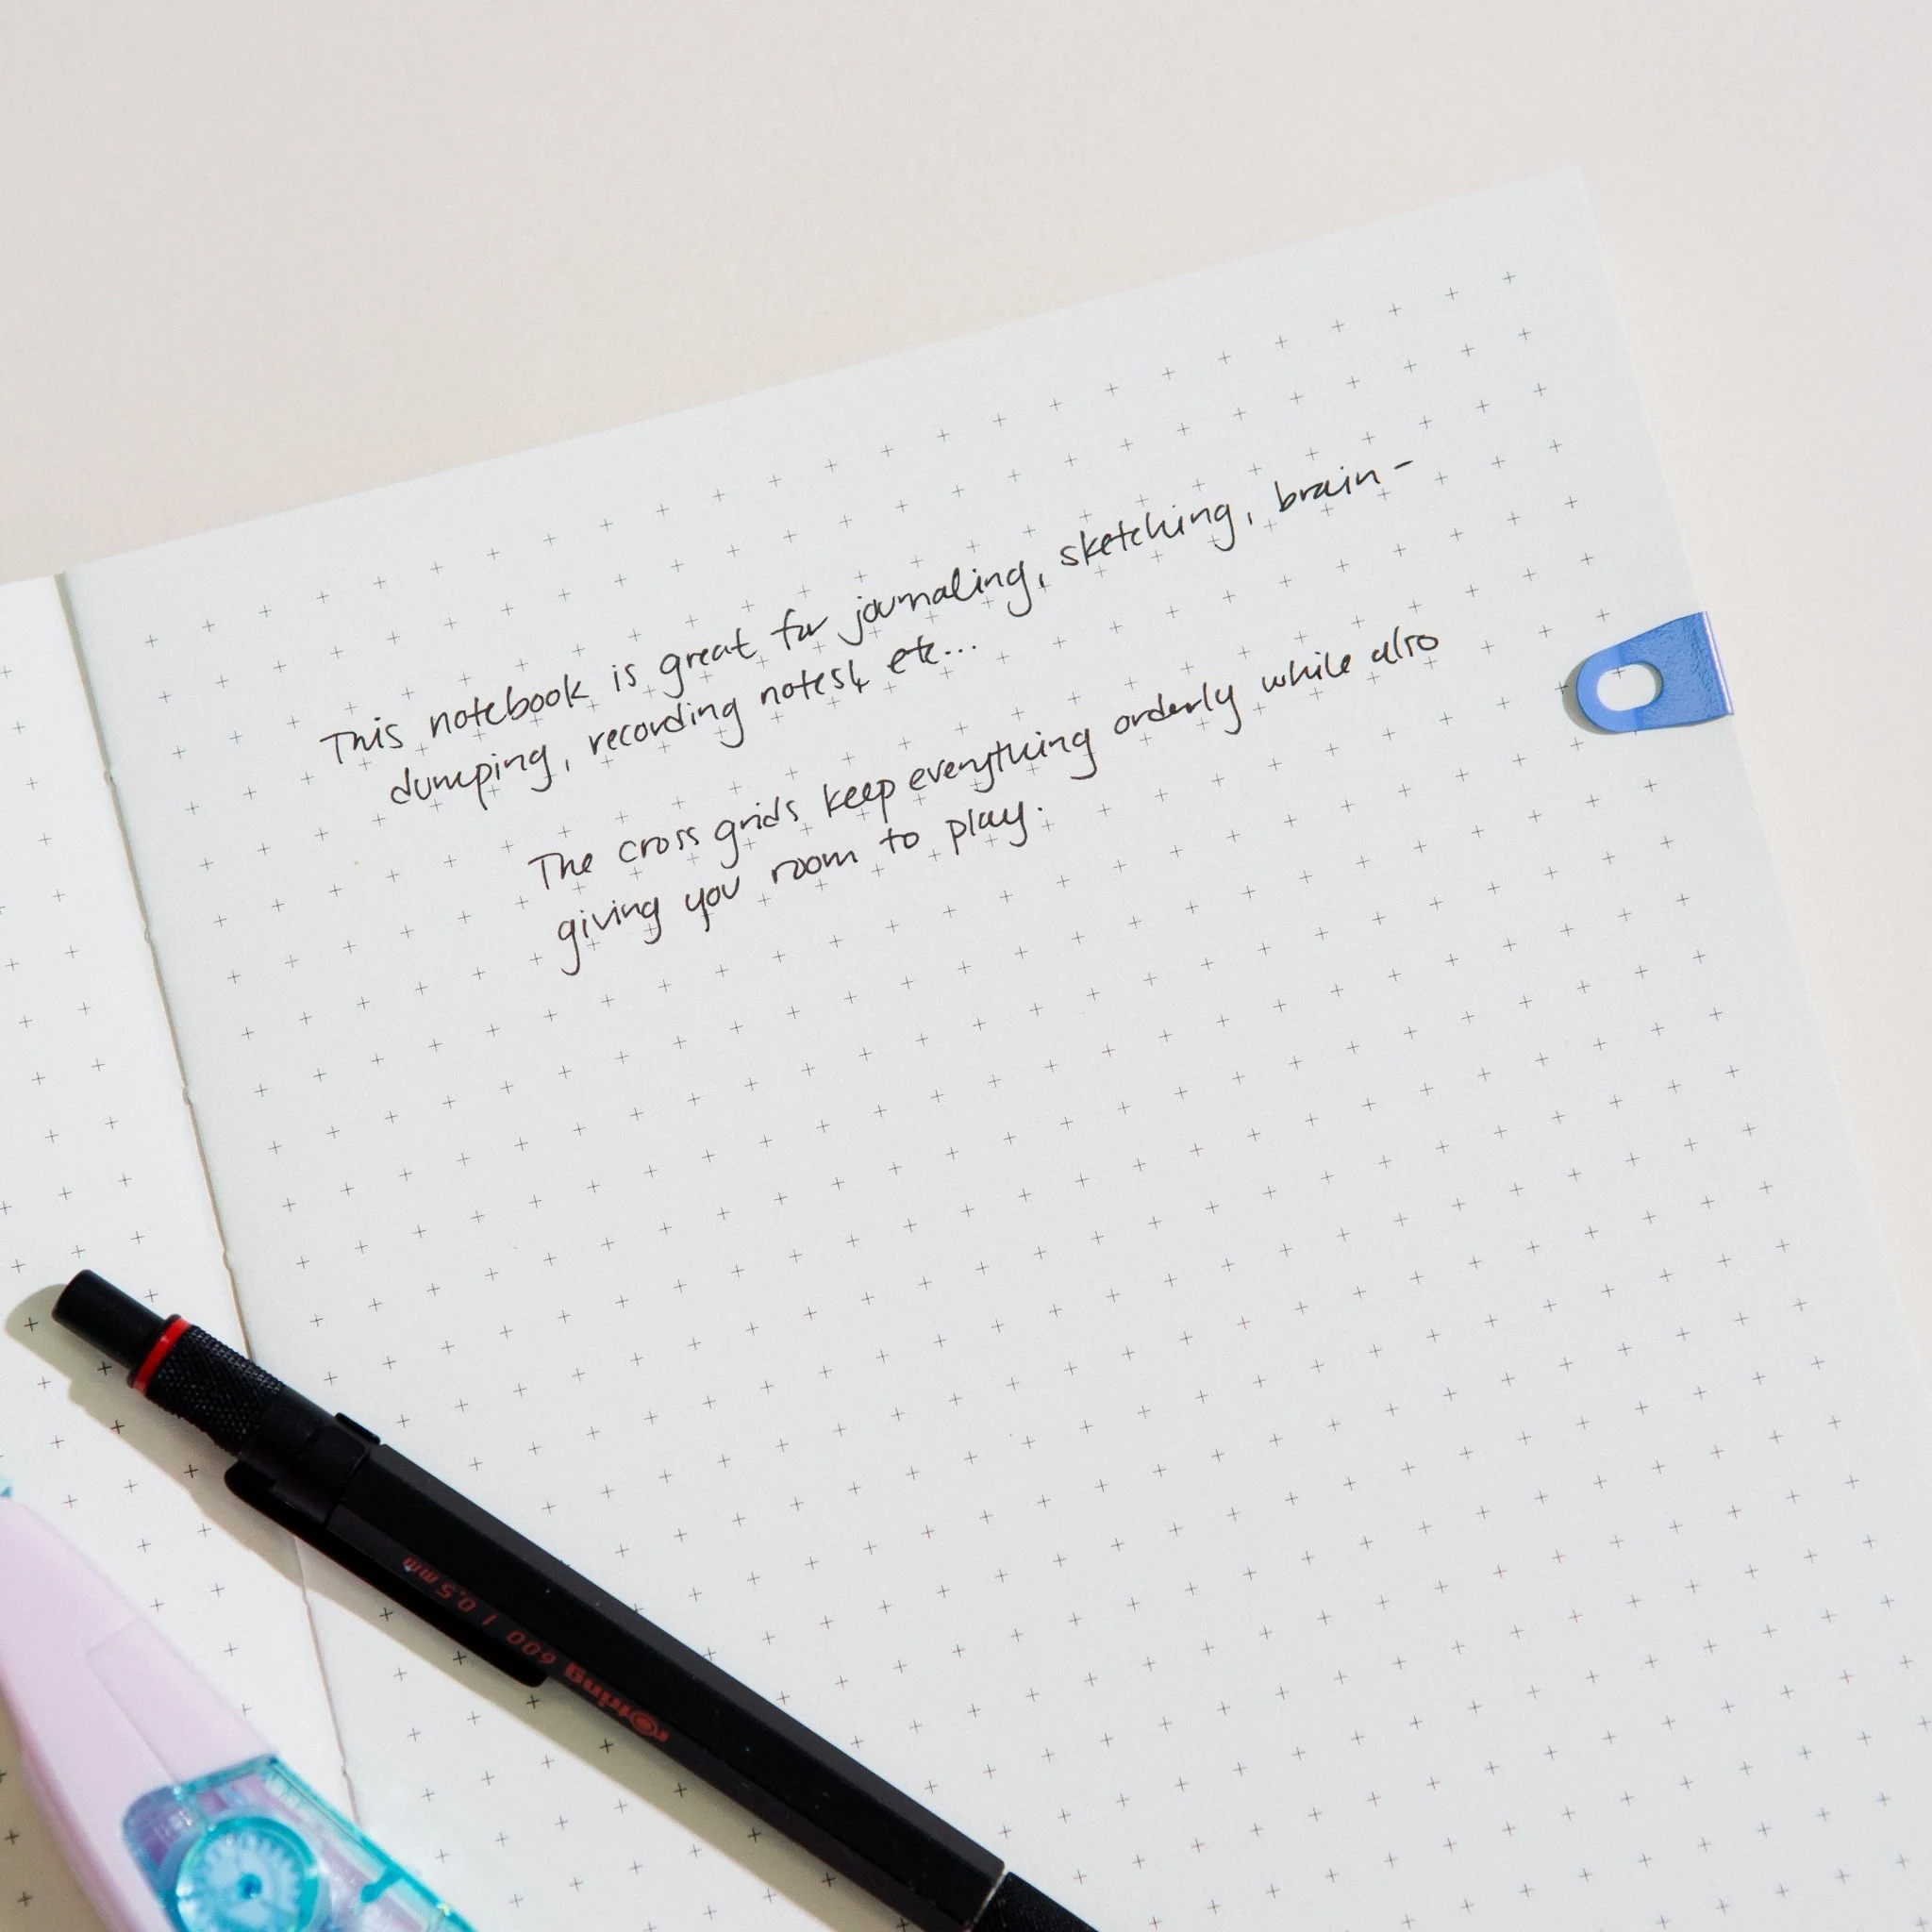 This notebook is great for journaling, sketching, brain-
dumping, recording notes, etc...
The cross grids keep everything orderly while also
giving you room to play.
rotring 600 | 0,5 mm